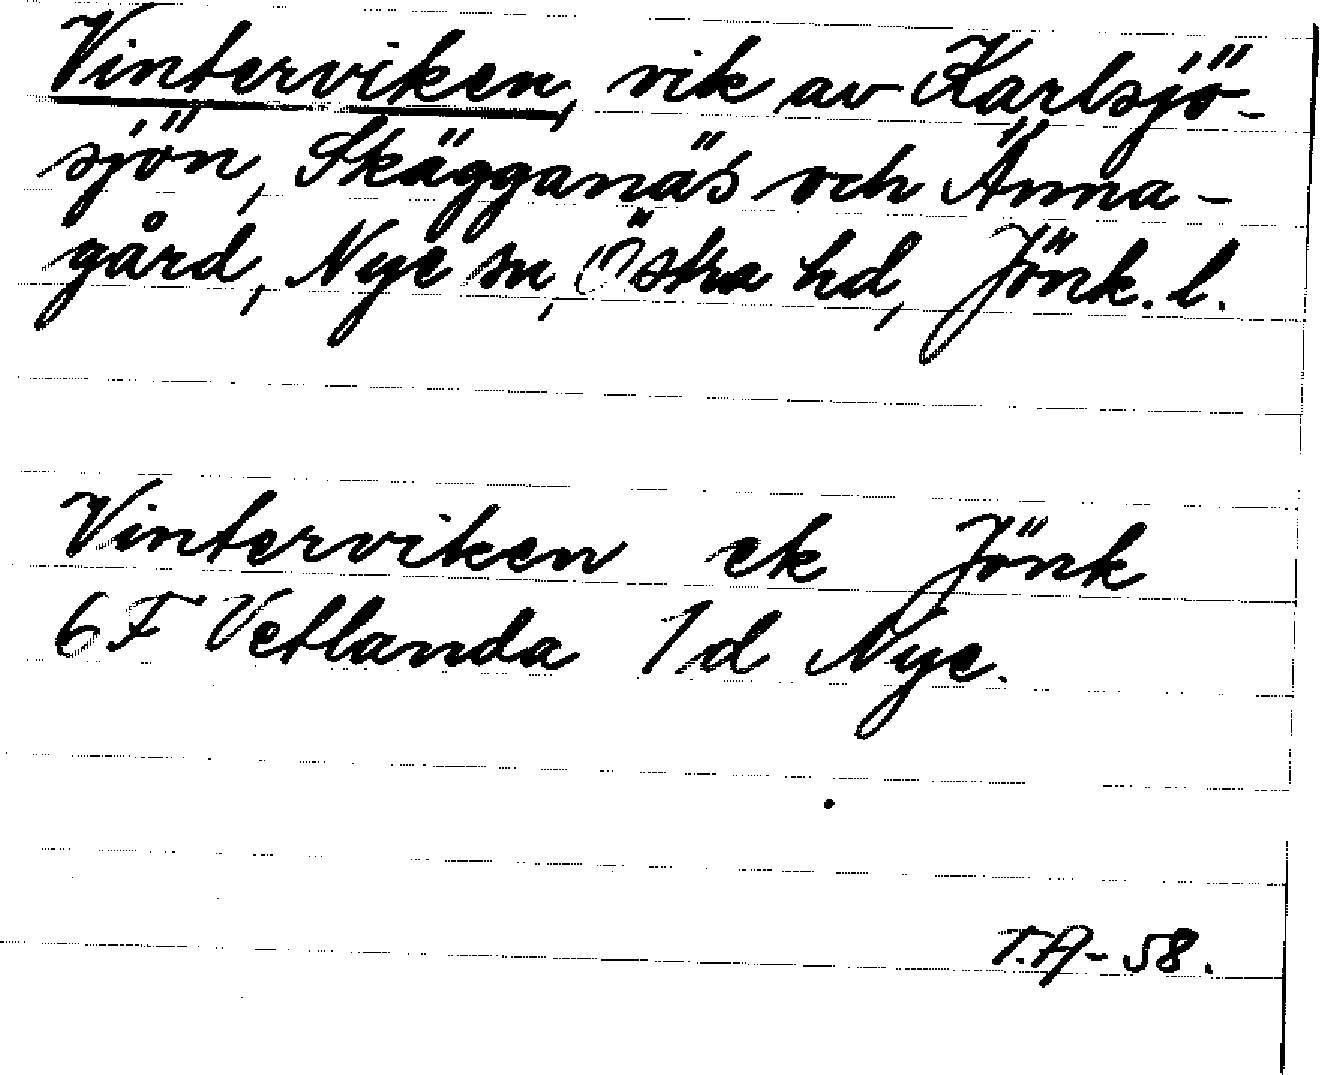 Vinterviken, vik av Karlsjö-
sjön, Skägganäs och Änna-
gård, Nye sn, Östra hd, Jönk. l.
Vinterviken ek Jönk
6F Vetlanda 1d Nye.
T.A-58.